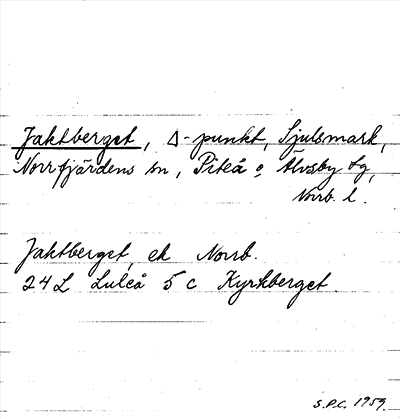 Jaktberget, Δ-punkt, Sjulsmark,
Norrfjärdens sn, Piteå o. Älvsby tg,
Norrb. l.
Jaktberget, ek Norrb.
24L Luleå 5 c Kyrkberget.
S.P.C. 1959.